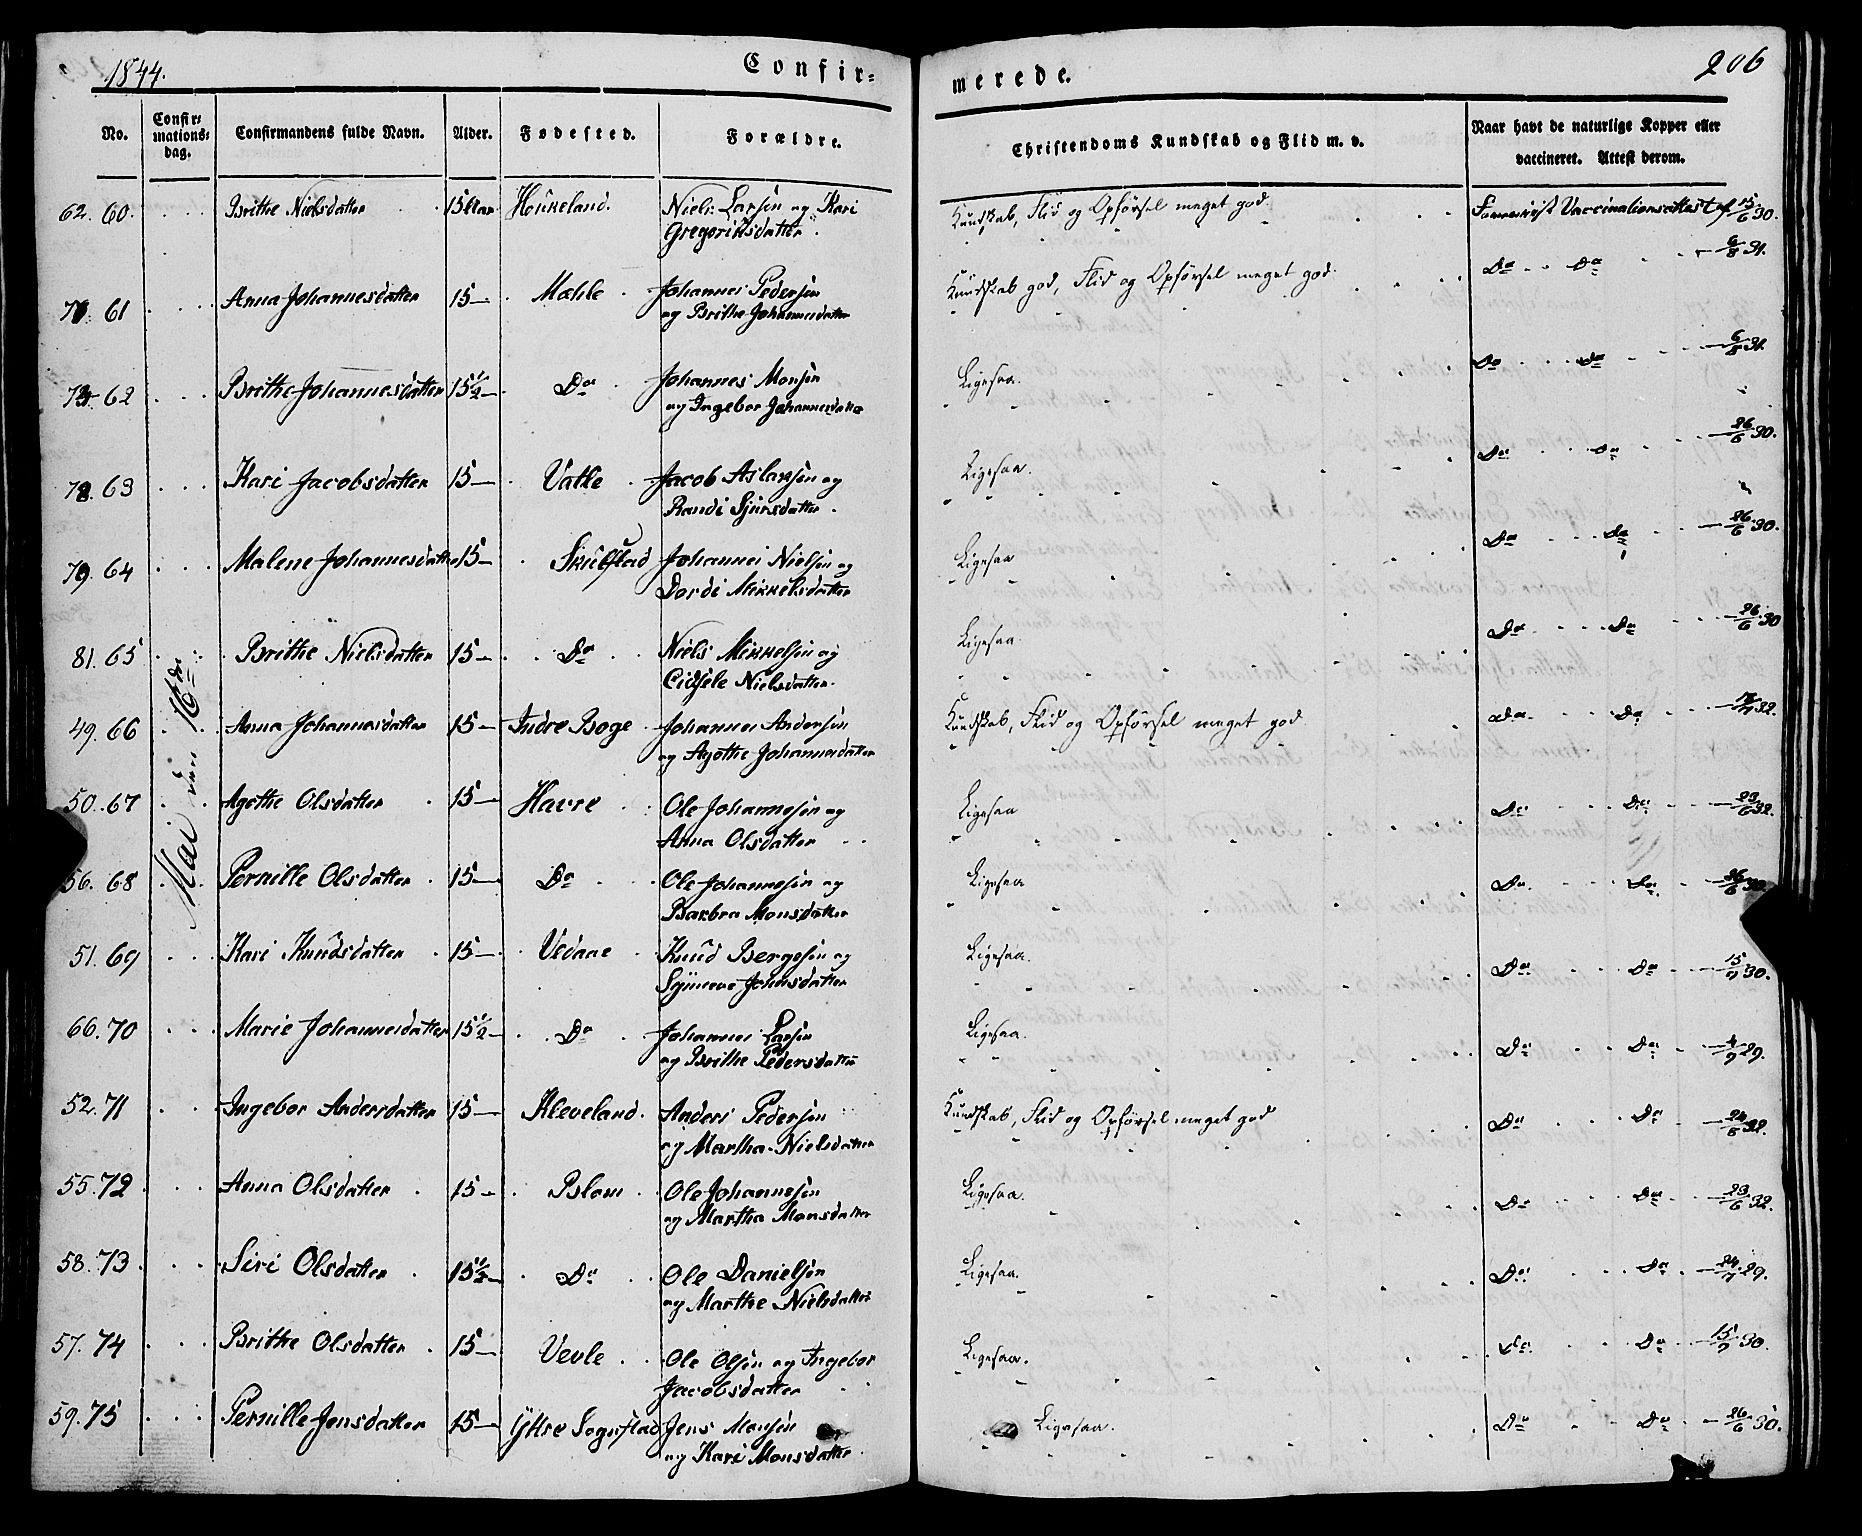 1844.
Confir=
merede.
206
No.
Confir=
mations=
dag.
Confirmandens fulde Navn.
Alder.
Fødested.
Forældre.
Christendoms Kundskab og Flid m. v.
Naar havt de naturlige Kopper eller
vaccineret. Attest derom.
Mai den 16de
62. 60. Brithe Nielsdatter 15 Houkeland. Niels Larsen og Kari Kundskab, Flid og Opførsel meget god. Foreviist Vaccinationsattest af 15/6 30.
Gregoriusdatter.
61 Anna Johannesdatter 15 Mæhle Johannes Pedersen Kundskab god, Flid og Opførsel meget god. Do Do 6/8 31.
og Brithe Johannesdatter
62 Brithe Johannesdatter 15 1/2 Do Johannes Monsen Ligesaa. Do Do 6/8 31.
og Ingebor Johannesdatter
78. 63 Kari Jacobsdatter 15 Vatle Jacob Aslaksen og Ligesaa. Do Do 26/6 30.
Randi Sjursdatter.
79. 64 Malene Johannesdatter 15 Skulstad Johannes Nielsen og Ligesaa Do Do 26/6 30.
Dordi Mikkelsdatter
81. 65 Brithe Nielsdatter 15 Do Niels Mikkelsen og Ligesaa. Do Do 26/6 30
Cidsele Nielsdatter.
49. 66 Anna Johannesdatter 15 Indre Boge Johannes Andersen Kundskab, Flid og Opførsel meget god. Do Do 32.
og Agothe Johannesdatter
50. 67 Agothe Olsdatter 15 Havre Ole Johannesen og Ligesaa Do Do 23/6 32.
Anna Olsdatter
56. 68 Pernille Olsdatter 15 Do Ole Johannesen og Ligesaa Do Do
Barbra Monsdatter
51. 69 Kari Knudsdatter 15 Vedaae Knud Bergesen og Ligesaa. Do Do 15/7 30.
Synneve Johnsdatter
66. 70 Marie Johannesdatter 15 1/2 Do Johannes Larsen Ligesaa. Do Do 4/9 29.
og Brithe Pedersdatter
52. 71 Ingebor Andersdatter 15 Kleveland. Anders Pedersen Kundskab, Flid og Opførsel meget god Do Do 32.
og Martha Nielsdatter
55. 72 Anna Olsdatter 15 Blom Ole Johannesen Ligesaa. Do Do 23/6 32.
og Martha Monsdatter
58. 73 Siri Olsdatter 15 1/2 Do Ole Danielsen Ligesaa. Do Do 24/7 29.
og Marthe Nielsdatter
57. 74 Brithe Olsdatter 15 Vevle Ole Olsen og Ingebor Ligesaa. Do Do 15/7 30.
Jacobsdatter
59. 75 Pernille Jensdatter 15 Yttre Sognstad Jens Monsen Ligesaa. Do Do 26/6 30.
og Kari Monsdatter